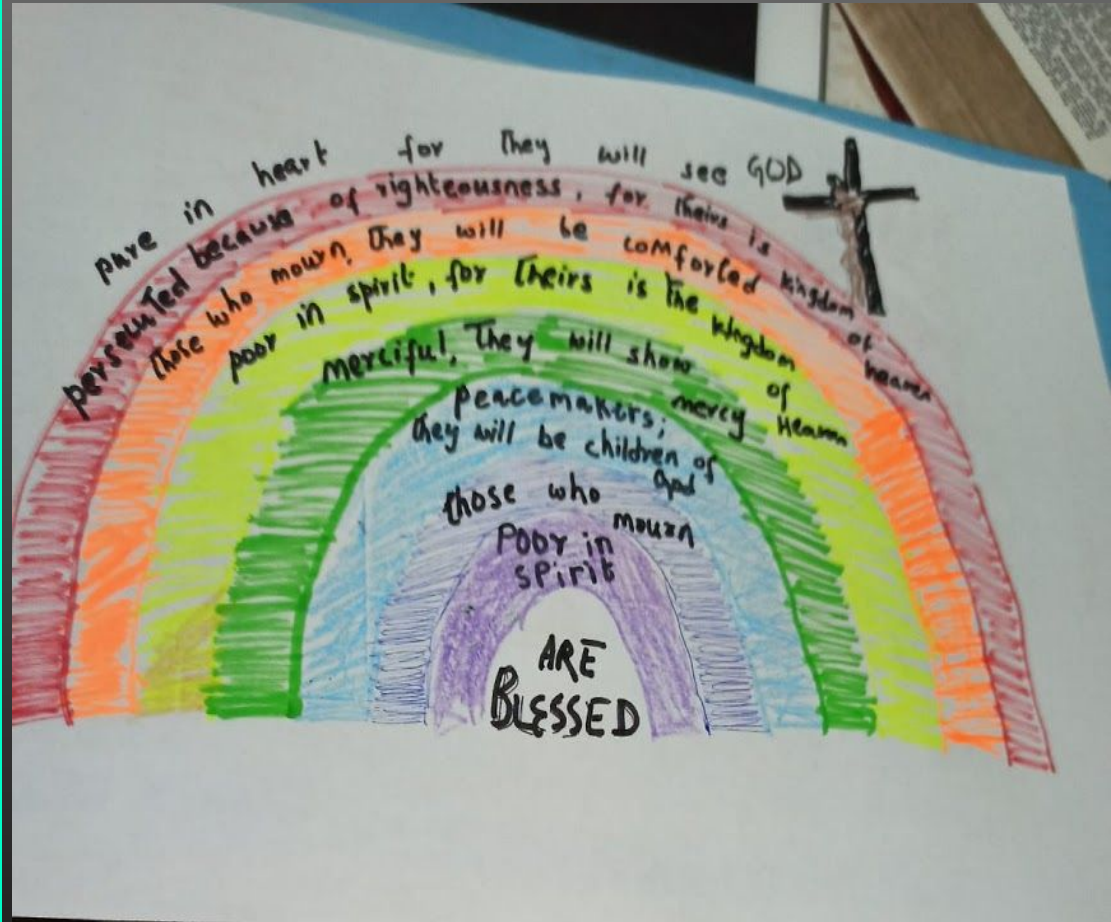 pure in heart for They will see GOD
persecuted because of righteousness, for Theirs is kingdom of heaven
Those who mourn, They will be comforted
poor in spirit, for Theirs is The kingdom of Heaven
merciful, They will show mercy
peacemakers;
they will be children of God
those who mourn
Poor in
spirit
ARE
BLESSED